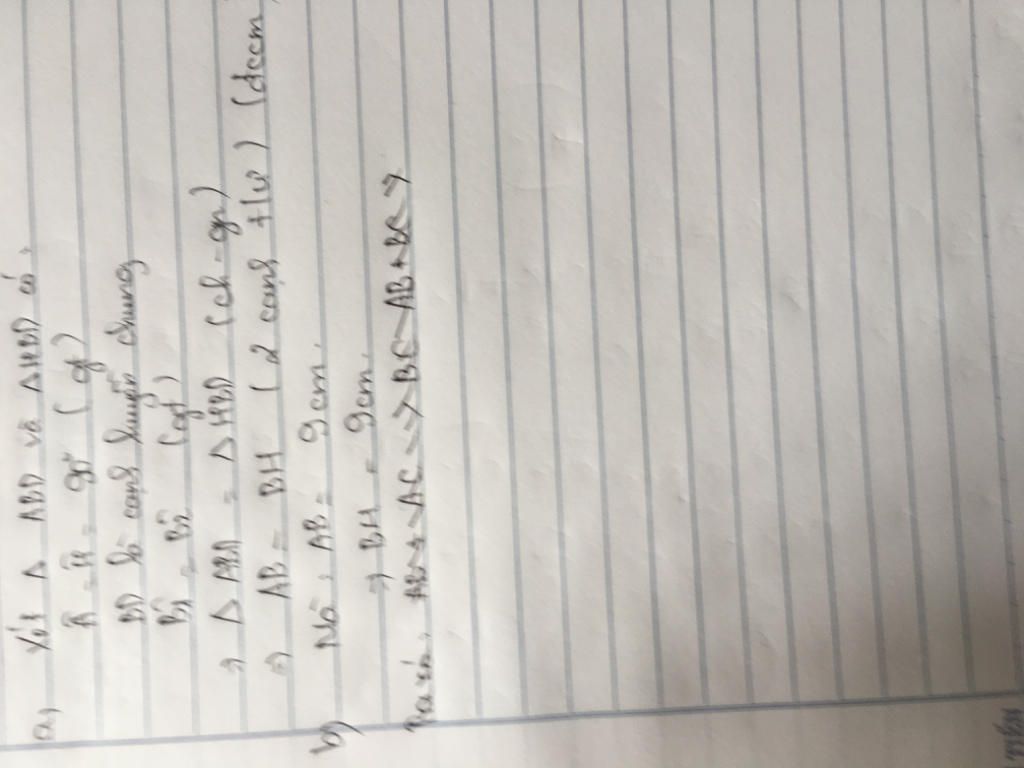 a, Xét Δ ABD và ΔHBD có:
Â = Ĥ = 90° ( gt )
BD là cạnh huyền chung
B̂₁ = B̂₂ (gt)
=> Δ ABD = Δ HBD (ch - gn)
=> AB = BH ( 2 cạnh t/ư ) (đccm)
b) Nếu AB = 9cm.
=> BH = 9cm.
AB + AC > BC AB + BC >